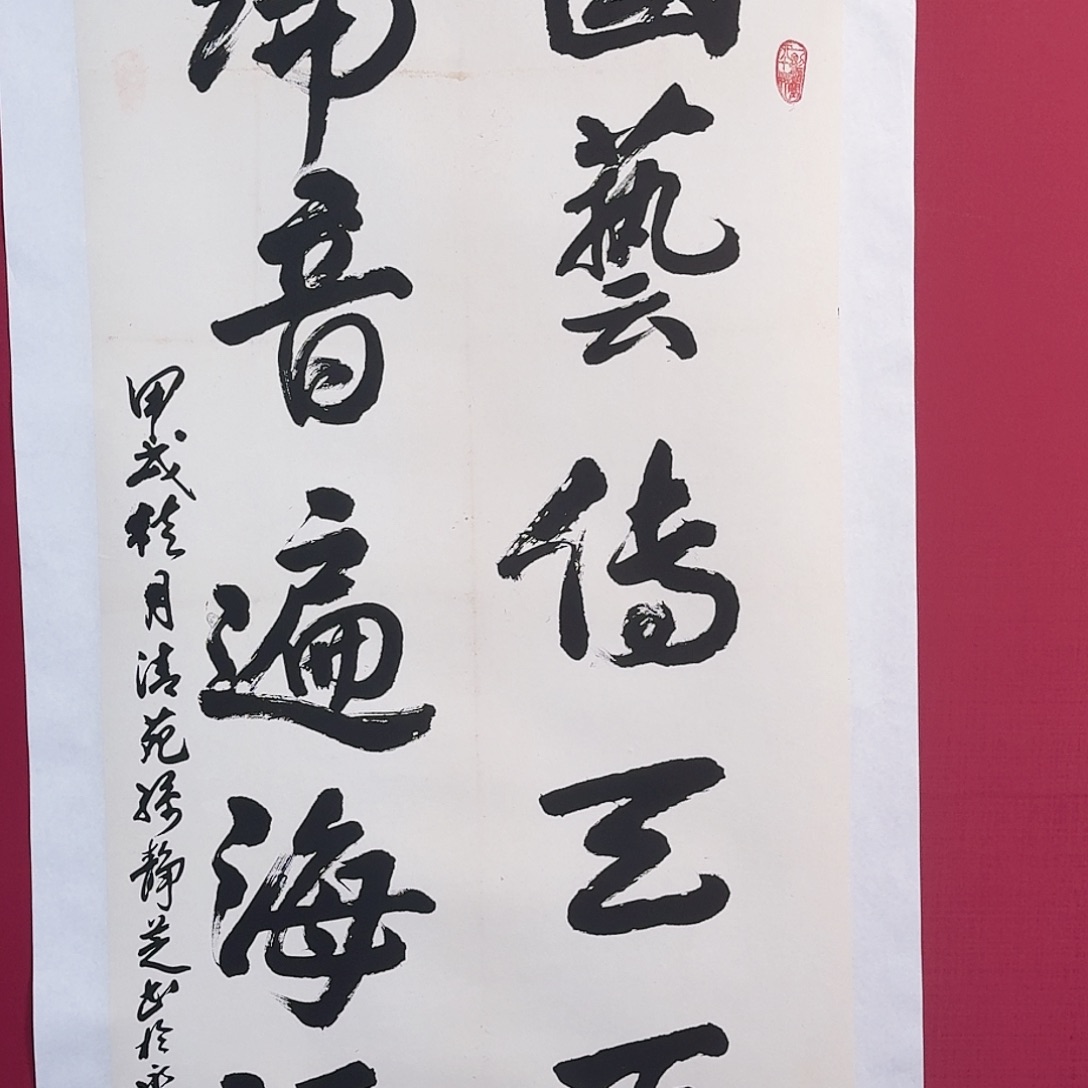 藝傳五
音遍海
甲戌桂月清苑孫静芝书於